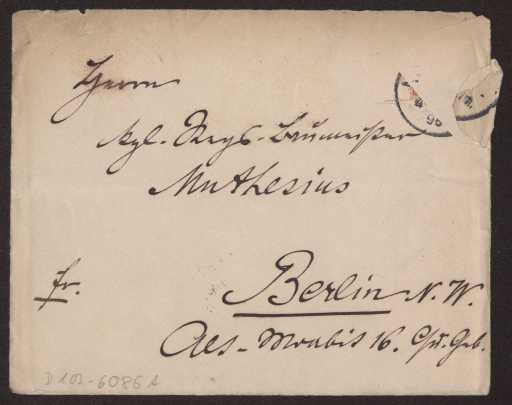 Herrn
kgl. Regs-Baumeister
Muthesius
fr.
Berlin N.W.
Alt-Moabit 16.
D 102-6086 A
96